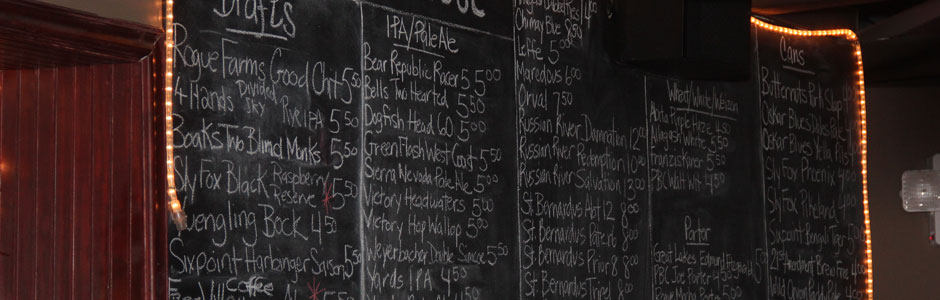 Drafts
Rogue Farms Good Chit 5.50
4 Hands Divided Sky Rye IPA 5.50
Boaks Two Blind Monks 5.50
Sly Fox Black Raspberry Reserve 5.50
Yuengling Bock 4.50
Sixpoint Harbinger Saison 5.50
Coffee
IPA/Pale Ale
Bear Republic Racer 5 5.00
Bells Two Hearted 5.50
Dogfish Head 60 5.00
Green Flash West Coast 5.50
Sierra Nevada Pale Ale 5.00
Victory Headwaters 5.00
Victory Hop Wallop 5.00
Weyerbacher Double Simcoe 5.50
Yards IPA 4.50
Chimay Blue 8.00
Leffe 5.00
Maredsous 6.00
Orval 7.50
Russian River Damnation 12.00
Russian River Redemption 10.00
Russian River Salvation 12.00
St Bernardus Abt 12 8.00
St Bernardus Patent 8.00
St Bernardus Prior 8 8.00
St Bernardus
Wheat/White/Weizen
Abita Purple Haze 4.50
Allagash White 5.00
Franziskaner 5.50
PBC Walt Wit 4.50
Porter
Great Lakes Edmund Fitzgerald 5.00
PBC Joe Porter 4.50
Cans
Butternuts Pork Slap
Oskar Blues Dales Pale
Oskar Blues Yella
Sly Fox Phoenix
Sly Fox Pikeland
Sixpoint Bengali Tiger
21st Amendment Brew Free